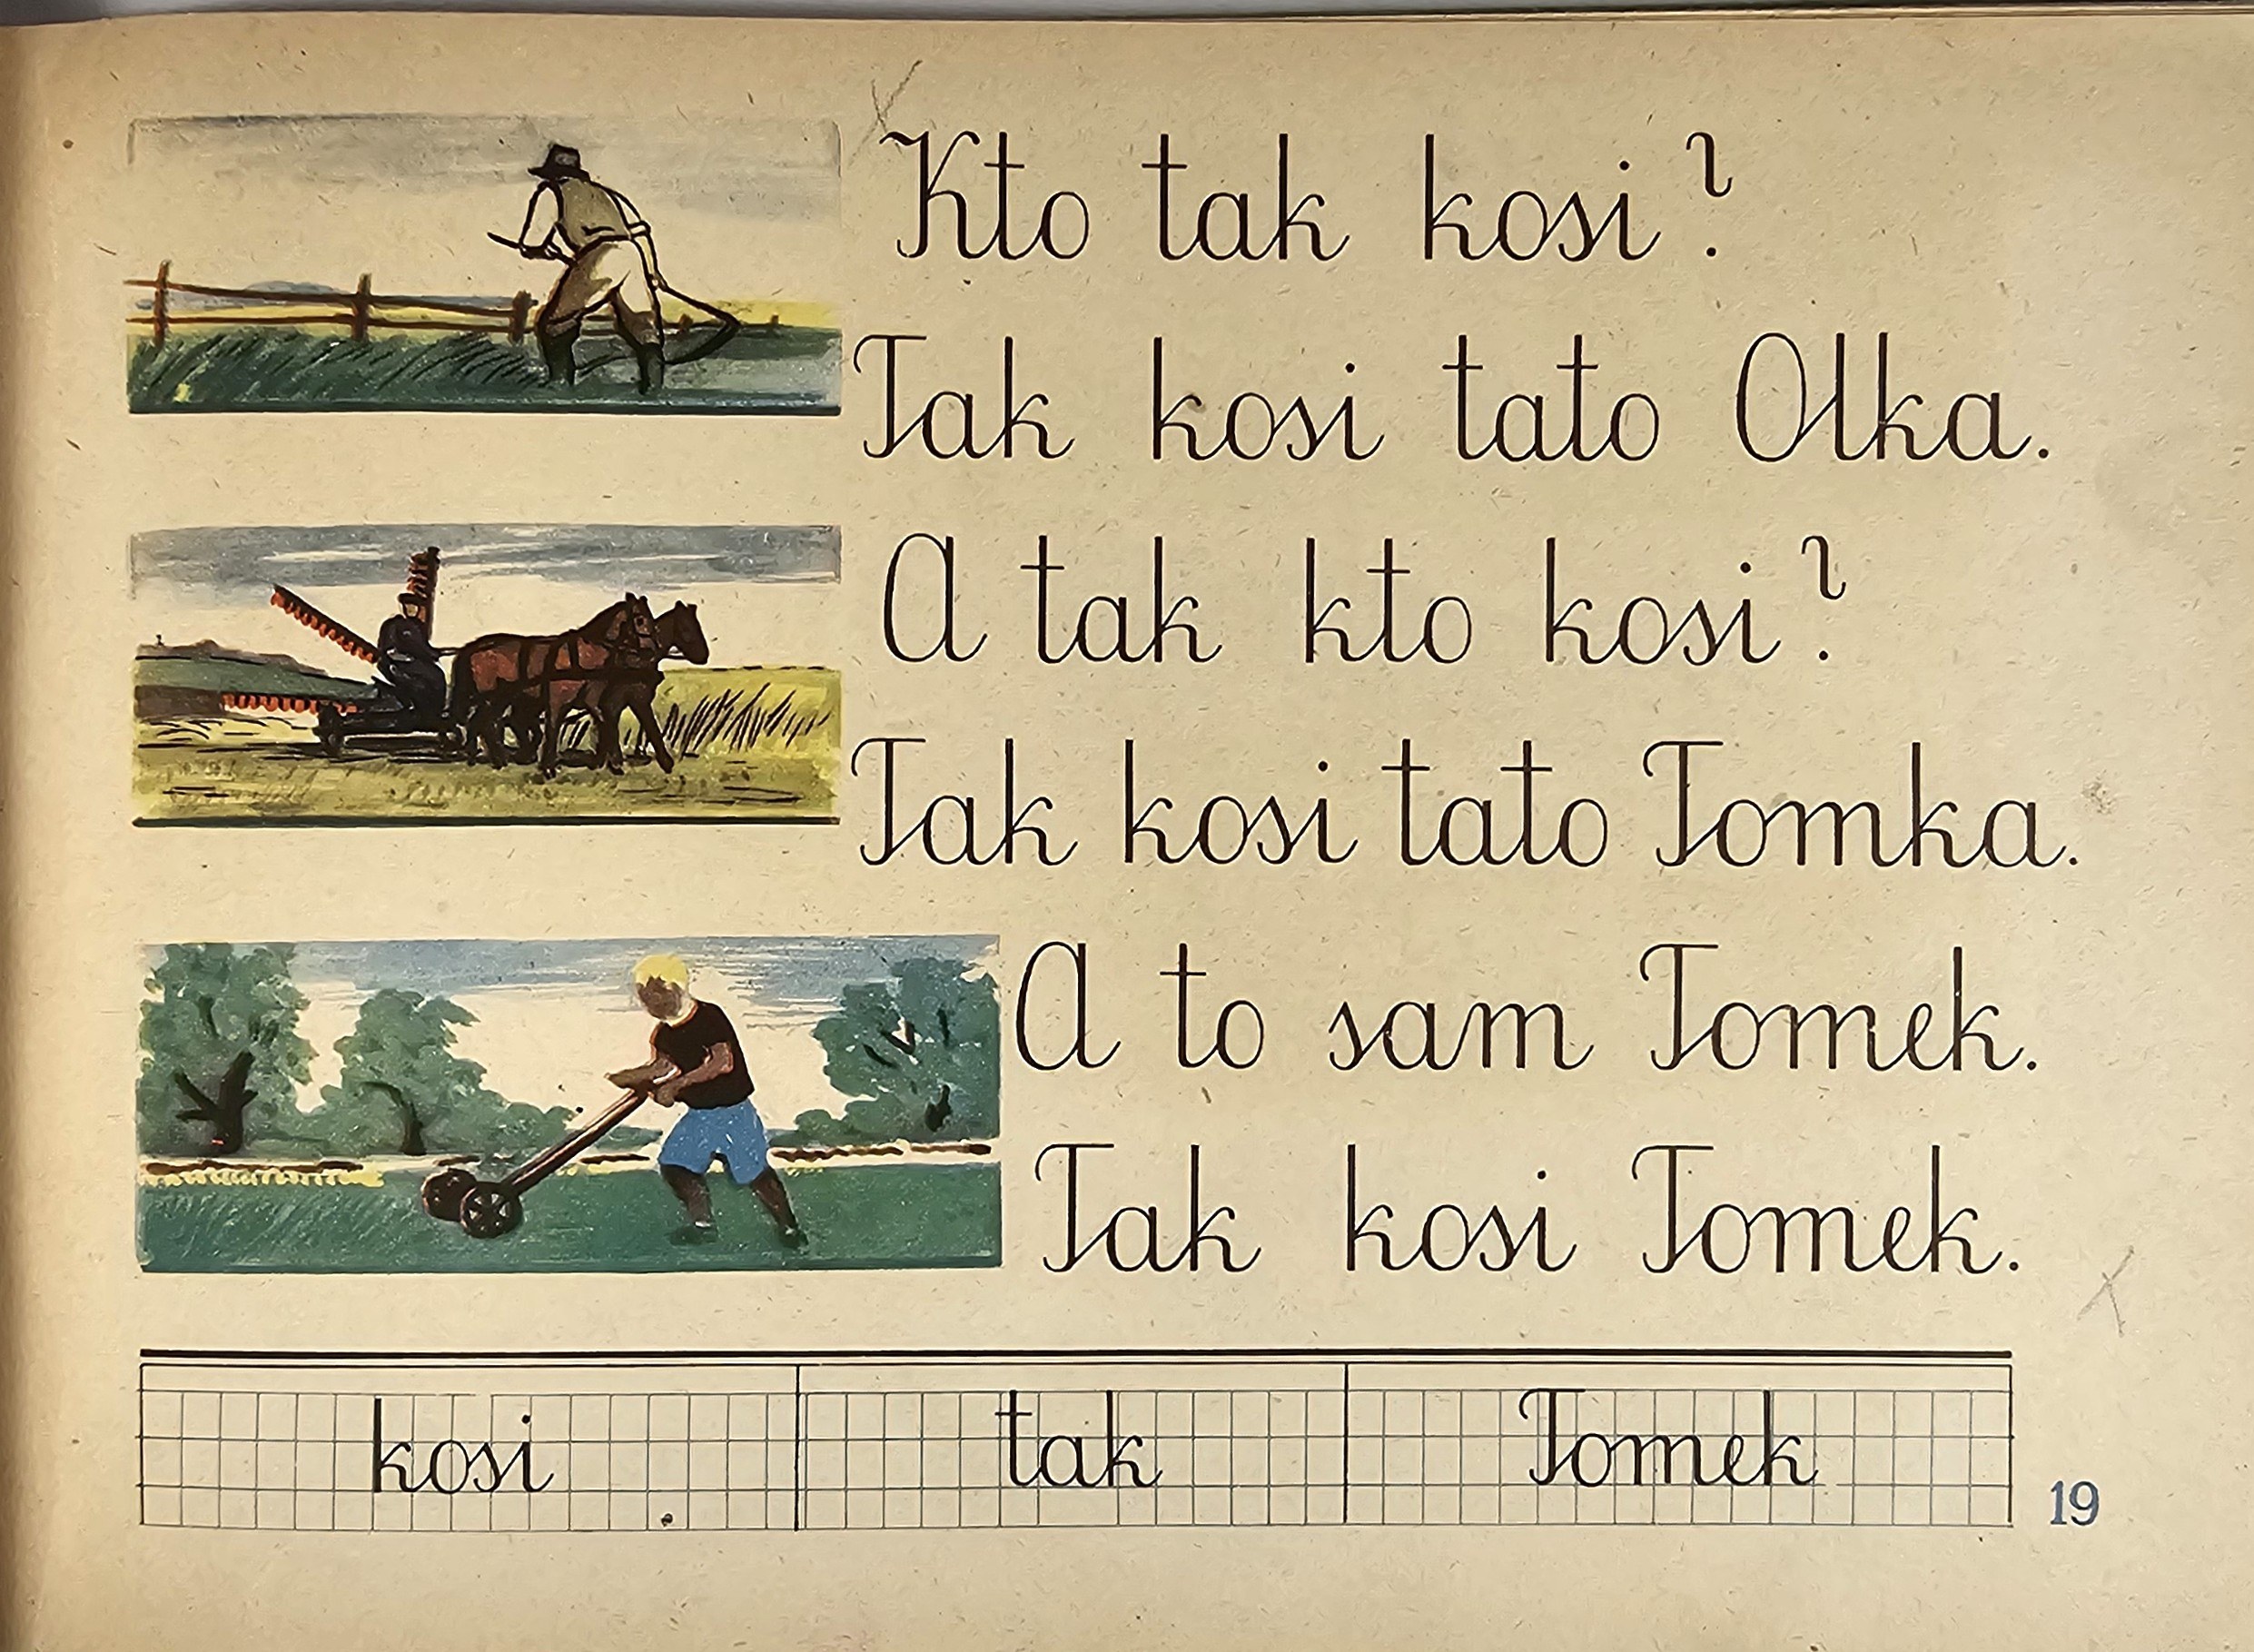 Kto tak kosi?
Tak kosi tato Olka.
A tak kto kosi?
Tak kosi tato Tomka.
A to sam Tomek.
Tak kosi Tomek.
kosi tak Tomek
19